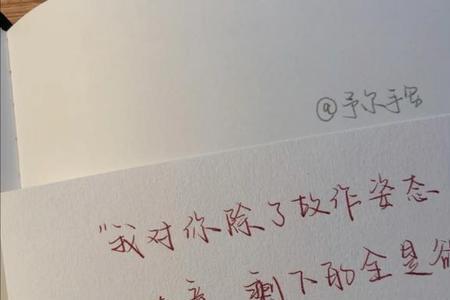 @予尔手写
"我对你除了故作姿态
剩下的全是